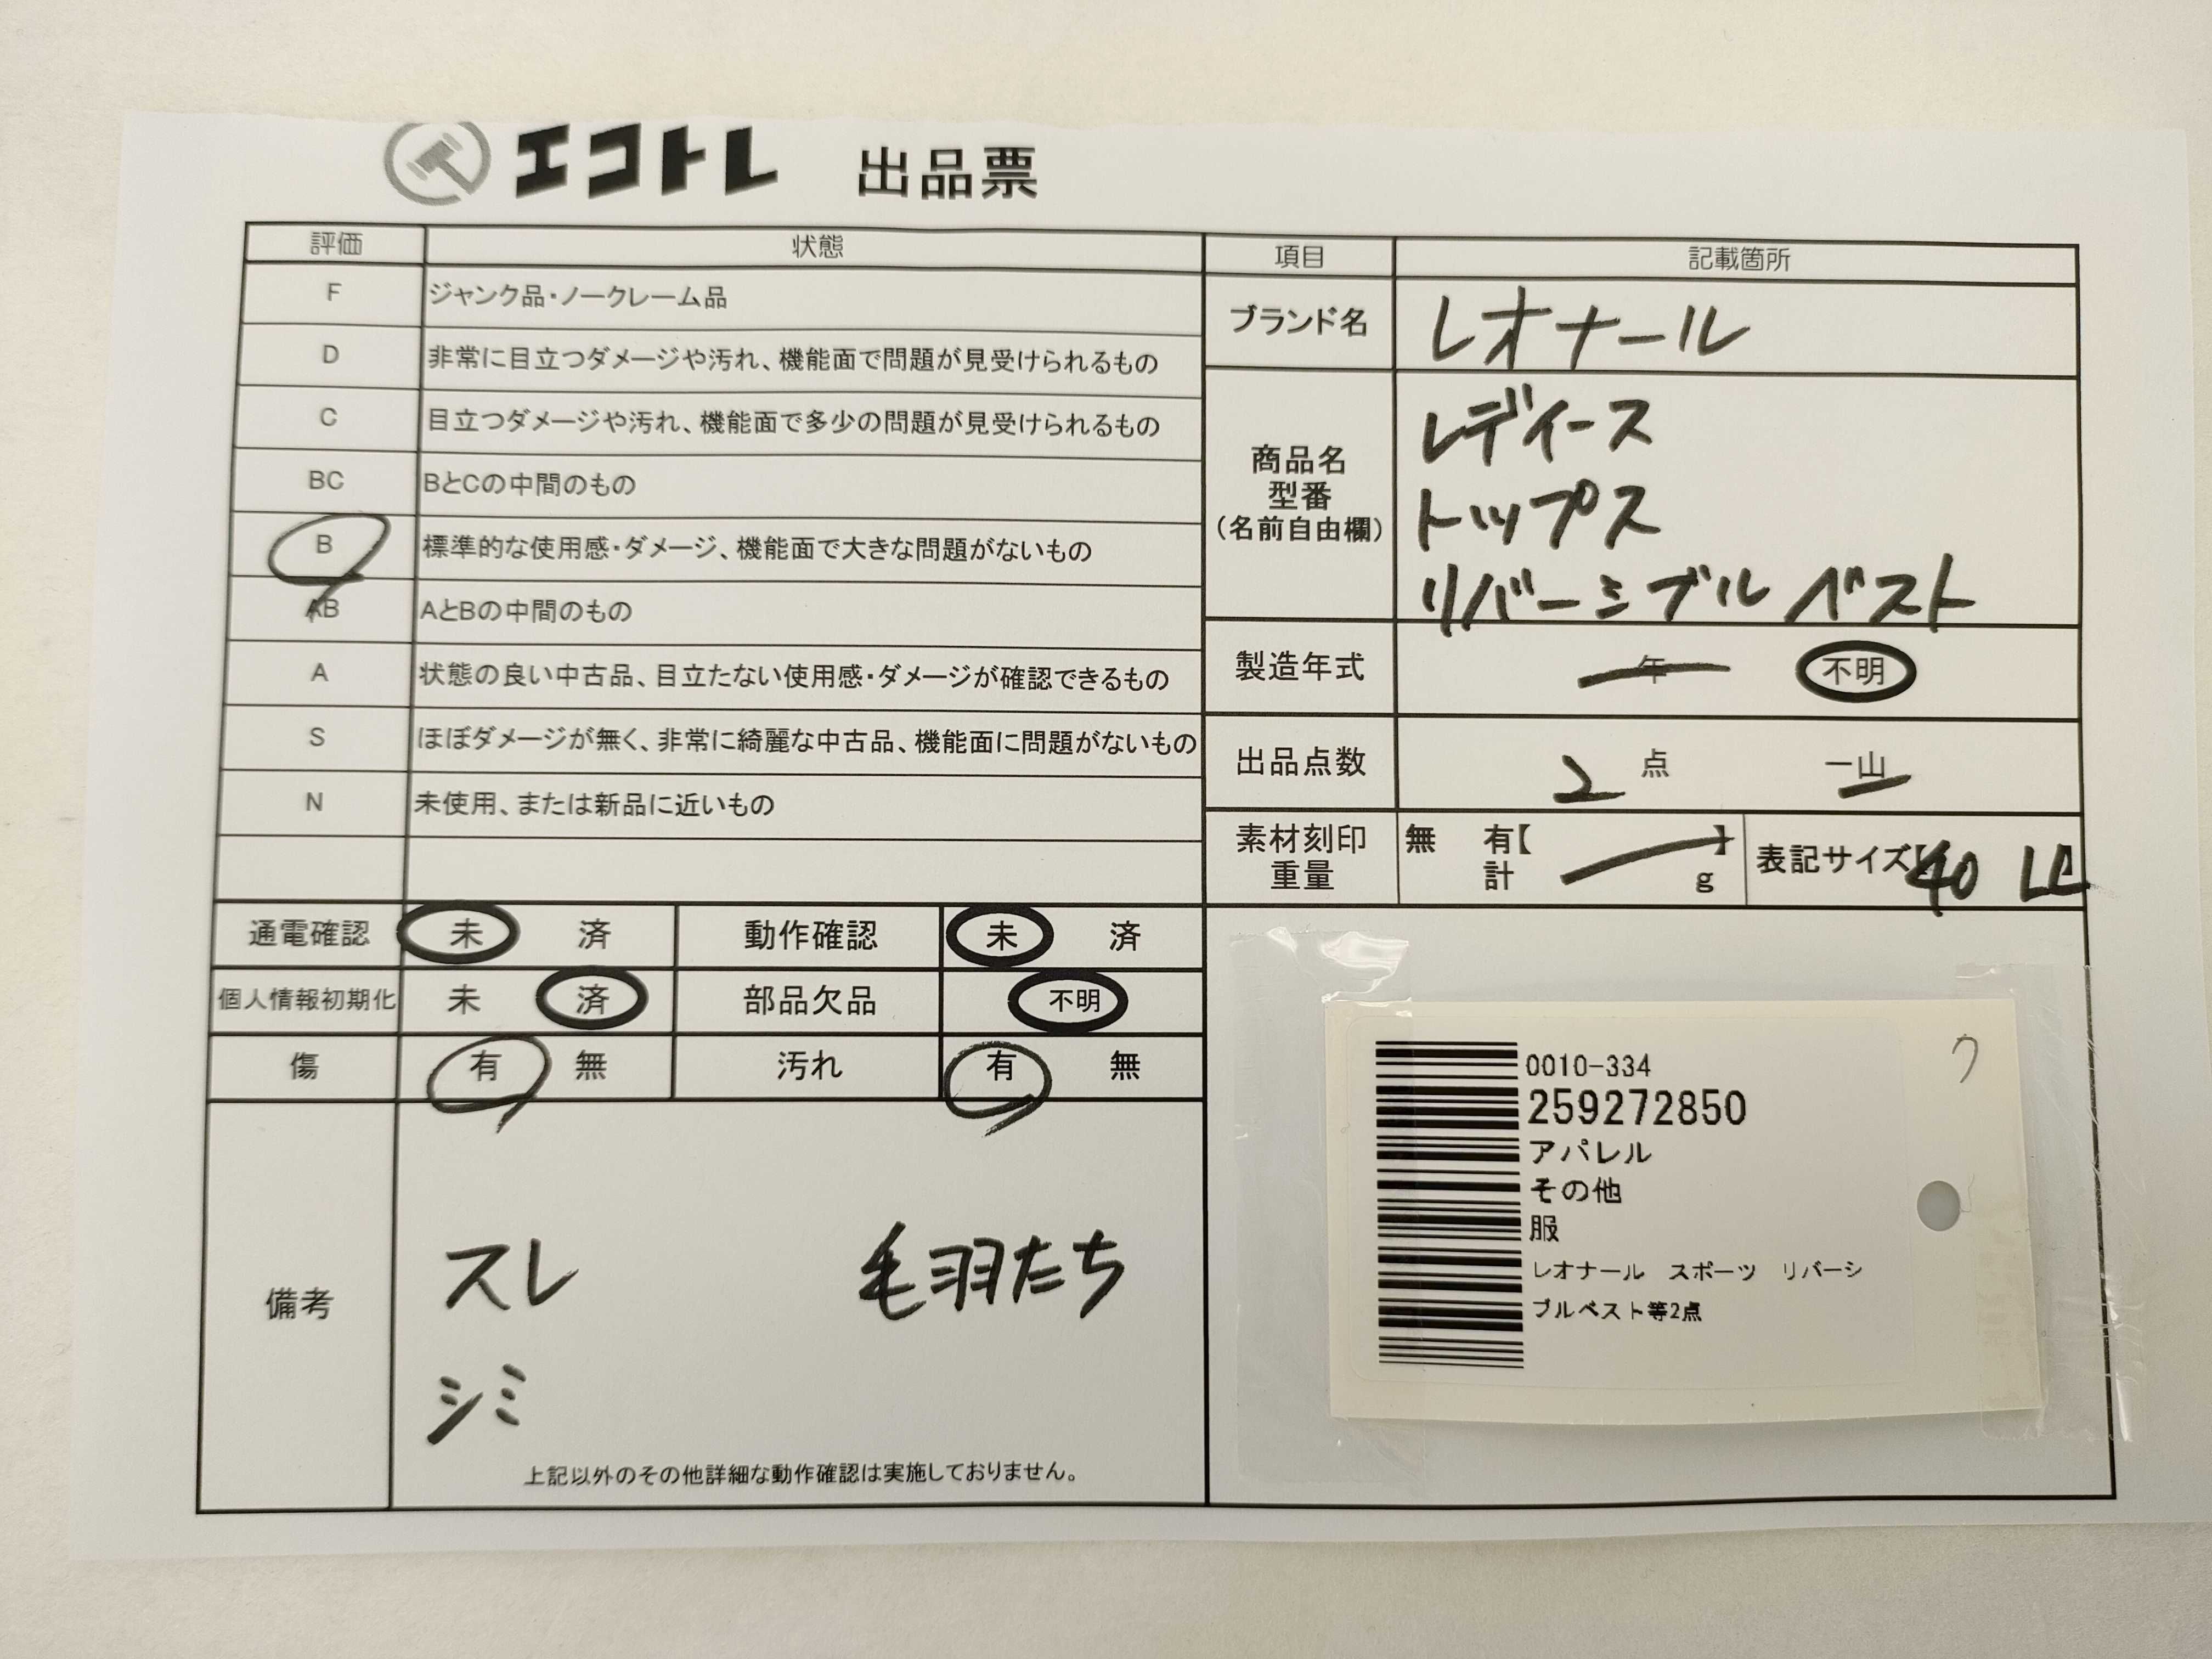 エコトレ 出品票
評価 状態
F ジャンク品・ノークレーム品
D 非常に目立つダメージや汚れ、機能面で問題が見受けられるもの
C 目立つダメージや汚れ、機能面で多少の問題が見受けられるもの
BC BとCの中間のもの
B 標準的な使用感・ダメージ、機能面で大きな問題がないもの
AB AとBの中間のもの
A 状態の良い中古品、目立たない使用感・ダメージが確認できるもの
S ほぼダメージが無く、非常に綺麗な中古品、機能面に問題がないもの
N 未使用、または新品に近いもの
通電確認 未 済 動作確認 未 済
個人情報初期化 未 済 部品欠品 不明
傷 有 無 汚れ 有 無
備考
スレ 毛羽たち
シミ
上記以外のその他詳細な動作確認は実施しておりません。
項目 記載箇所
ブランド名 レオナール
商品名
型番
(名前自由欄)
レディース
トップス
リバーシブル ベスト
製造年式 年 不明
出品点数 2 点 一山
素材刻印 無 有【 】
重量 計 g
表記サイズ【40 LL
0010-334
259272850
アパレル
その他
服
レオナール スポーツ リバーシ
ブルベスト等2点